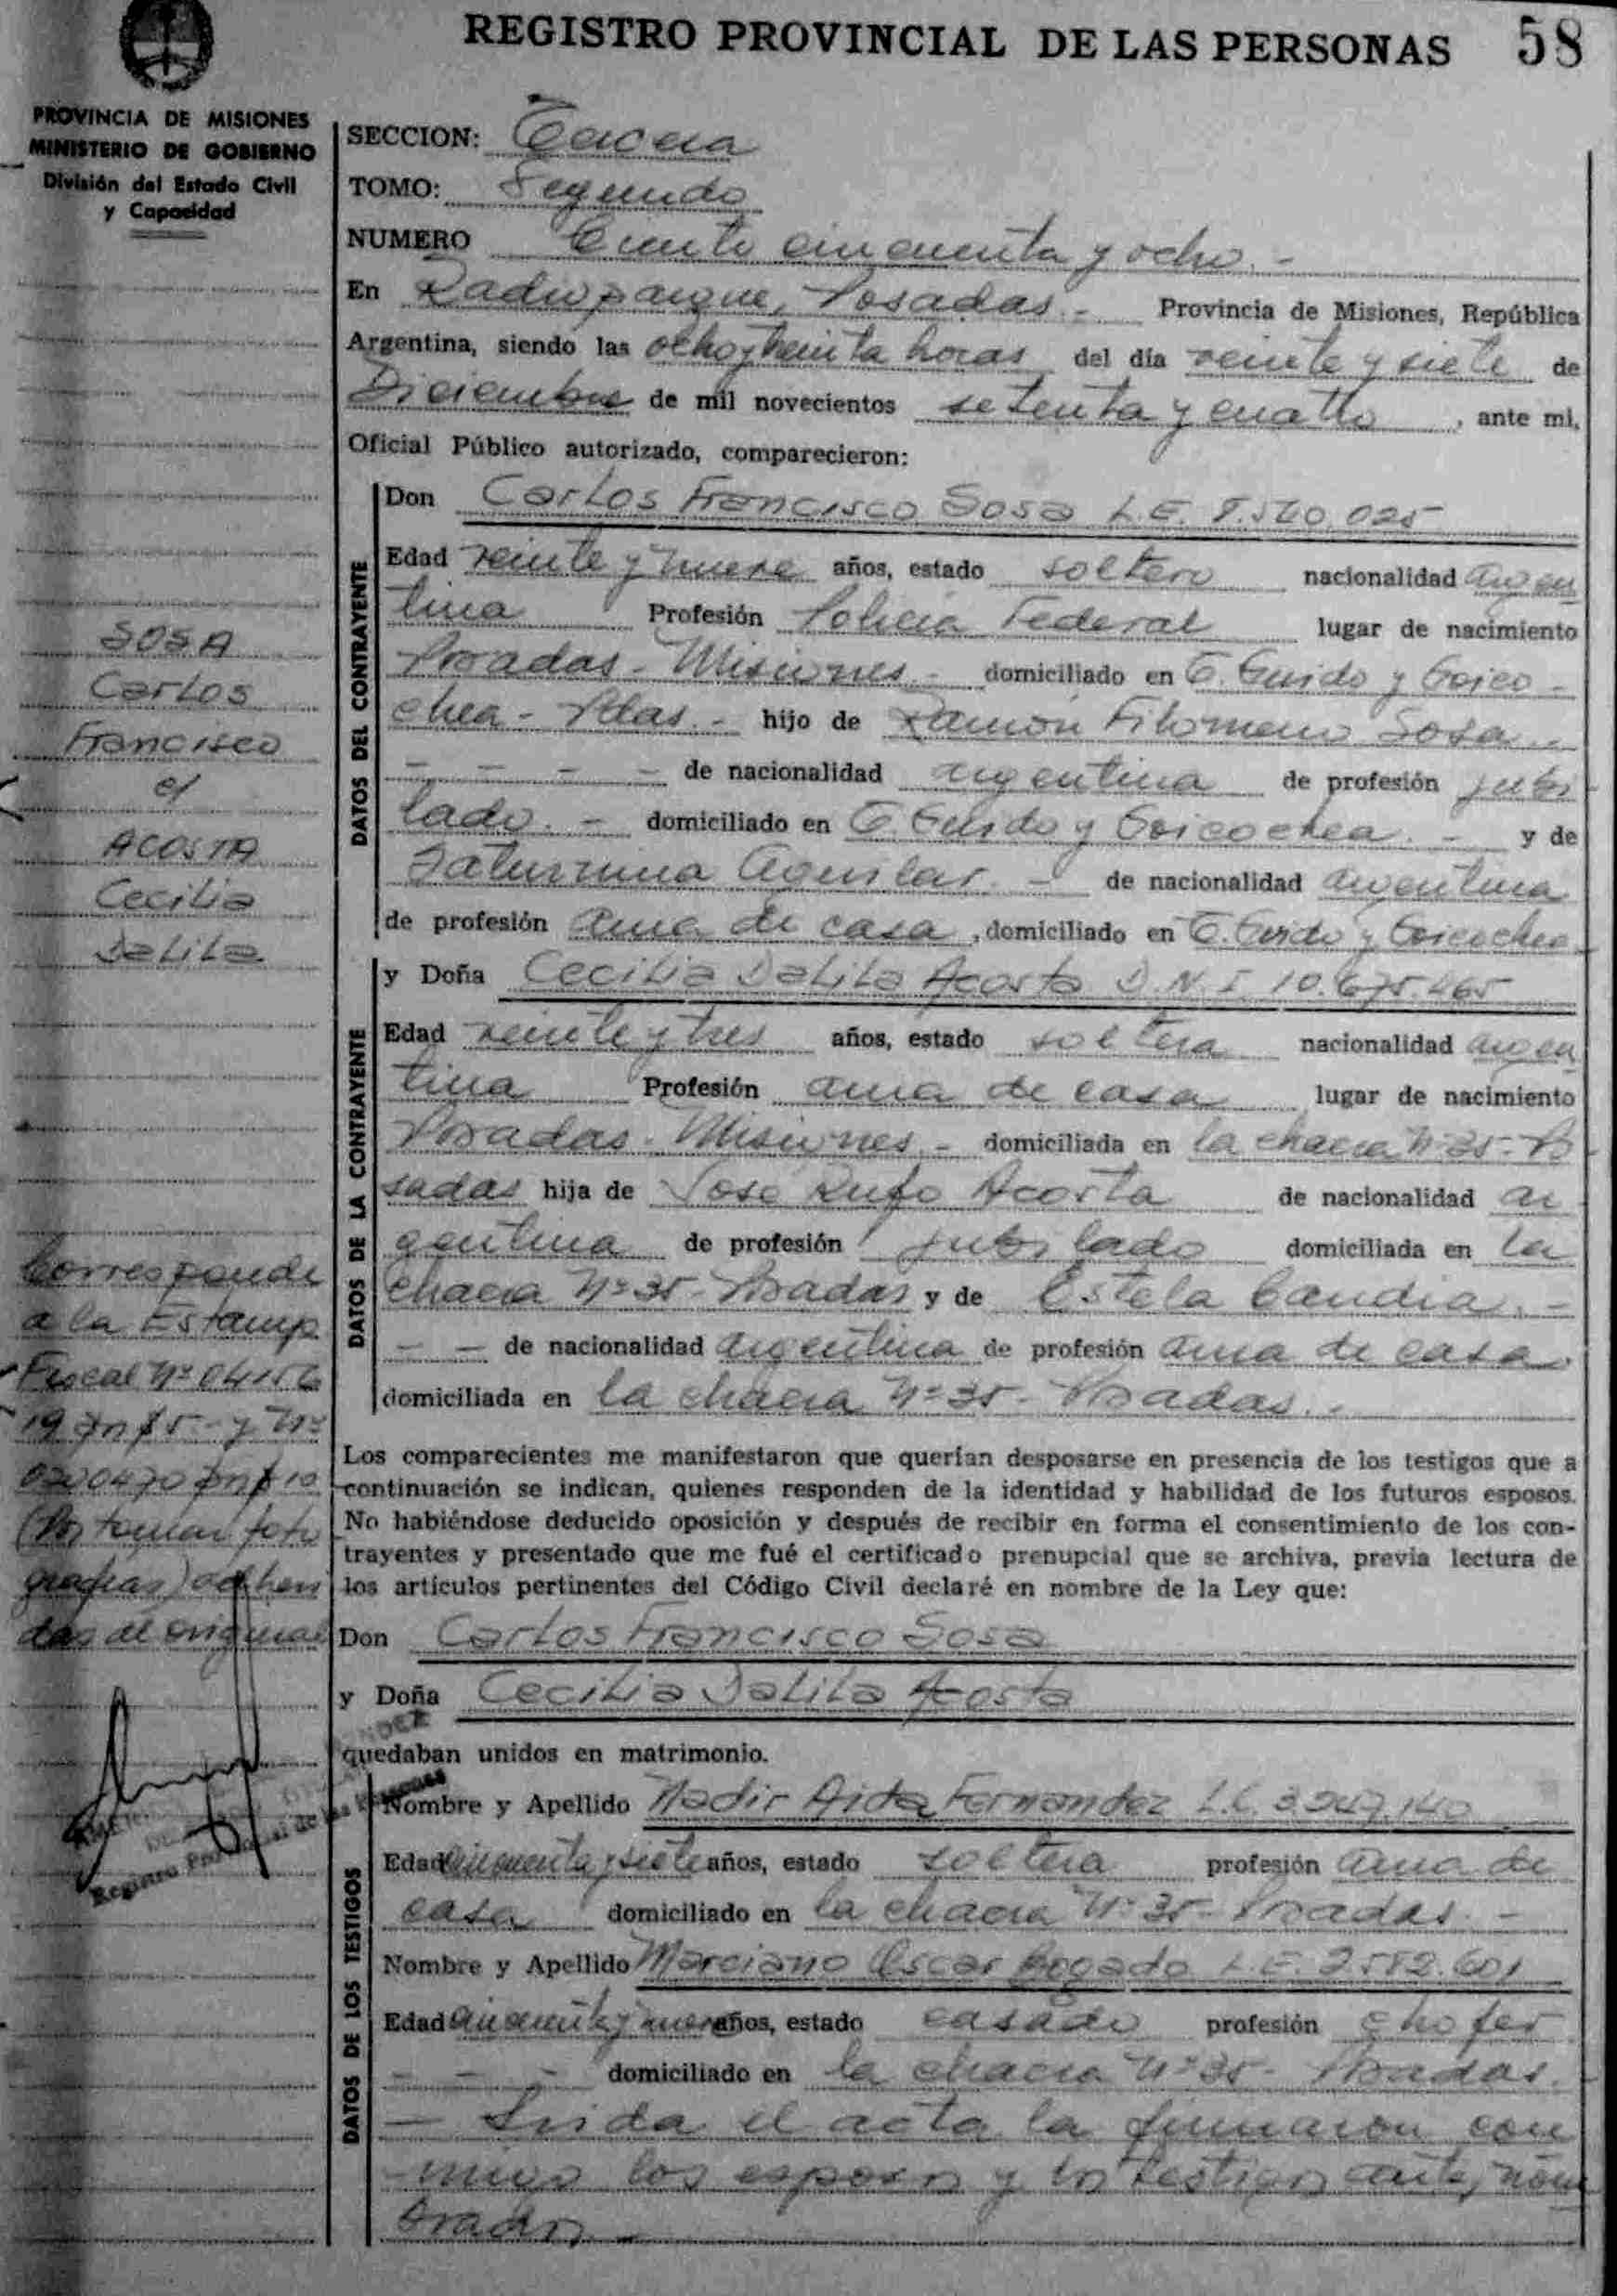 REGISTRO PROVINCIAL DE LAS PERSONAS 58
PROVINCIA DE MISIONES
MINISTERIO DE GOBIERNO
División del Estado Civil
y Capacidad
SECCION: Tercera
TOMO: Segundo
NUMERO Ciento cincuenta y ocho.-
En Radioparque, Posadas.- Provincia de Misiones, República
Argentina, siendo las ocho y treinta horas del día veinte y siete de
Diciembre de mil novecientos setenta y cuatro, ante mi,
Oficial Público autorizado, comparecieron:
DATOS DEL CONTRAYENTE
Don Carlos Francisco Sosa L.E. 8.540.025
Edad veinte y nueve años, estado soltero nacionalidad argen
tina Profesión Policia Federal lugar de nacimiento
Posadas - Misiones.- domiciliado en T. Guido y Goico-
chea - Pdas.- hijo de Ramón Filomeno Sosa.-
- - - - de nacionalidad argentina de profesión jubi
lado.- domiciliado en T. Guido y Goicochea.- y de
Saturnina Aguilar.- de nacionalidad argentina
de profesión ama de casa, domiciliado en T. Guido y Goicochea
DATOS DE LA CONTRAYENTE
y Doña Cecilia Dalila Acosta D.N.I 10.675.465
Edad veinte y tres años, estado soltera nacionalidad argen
tina Profesión ama de casa lugar de nacimiento
Posadas - Misiones.- domiciliada en la chacra Nº 35 - Po
sadas hija de José Rufo Acosta de nacionalidad ar
gentina de profesión jubilado domiciliada en la
chacra Nº 35 - Posadas y de Estela Candia.-
- - de nacionalidad argentina de profesión ama de casa
domiciliada en la chacra Nº 35 - Posadas.-
Los comparecientes me manifestaron que querían desposarse en presencia de los testigos que a
continuación se indican, quienes responden de la identidad y habilidad de los futuros esposos.
No habiéndose deducido oposición y después de recibir en forma el consentimiento de los con-
trayentes y presentado que me fué el certificado prenupcial que se archiva, previa lectura de
los artículos pertinentes del Código Civil declaré en nombre de la Ley que:
Don Carlos Francisco Sosa
y Doña Cecilia Dalila Acosta
quedaban unidos en matrimonio.
DATOS DE LOS TESTIGOS
Nombre y Apellido Nadir Aida Fernandez L.C. 3.247.140
Edad cincuenta y siete años, estado soltera profesión ama de
casa domiciliado en la chacra Nº 35 - Posadas.-
Nombre y Apellido Marciano Oscar Bogado L.E. 2.582.601
Edad cincuenta y nueve años, estado casado profesión chofer
- - - domiciliado en la chacra Nº 35 - Posadas.
- Leida el acta la firmaron con
migo los esposos y los testigos ante nom
brados.-
SOSA
Carlos
Francisco
c/
ACOSTA
Cecilia
Dalila
Corresponde
a la Estamp
Fiscal Nº 04156
19 p/n $5- y Nº
0200470 p/n $10
(Por tomar foto
grafias) adheri
das al original
Registro Provincial de las Personas